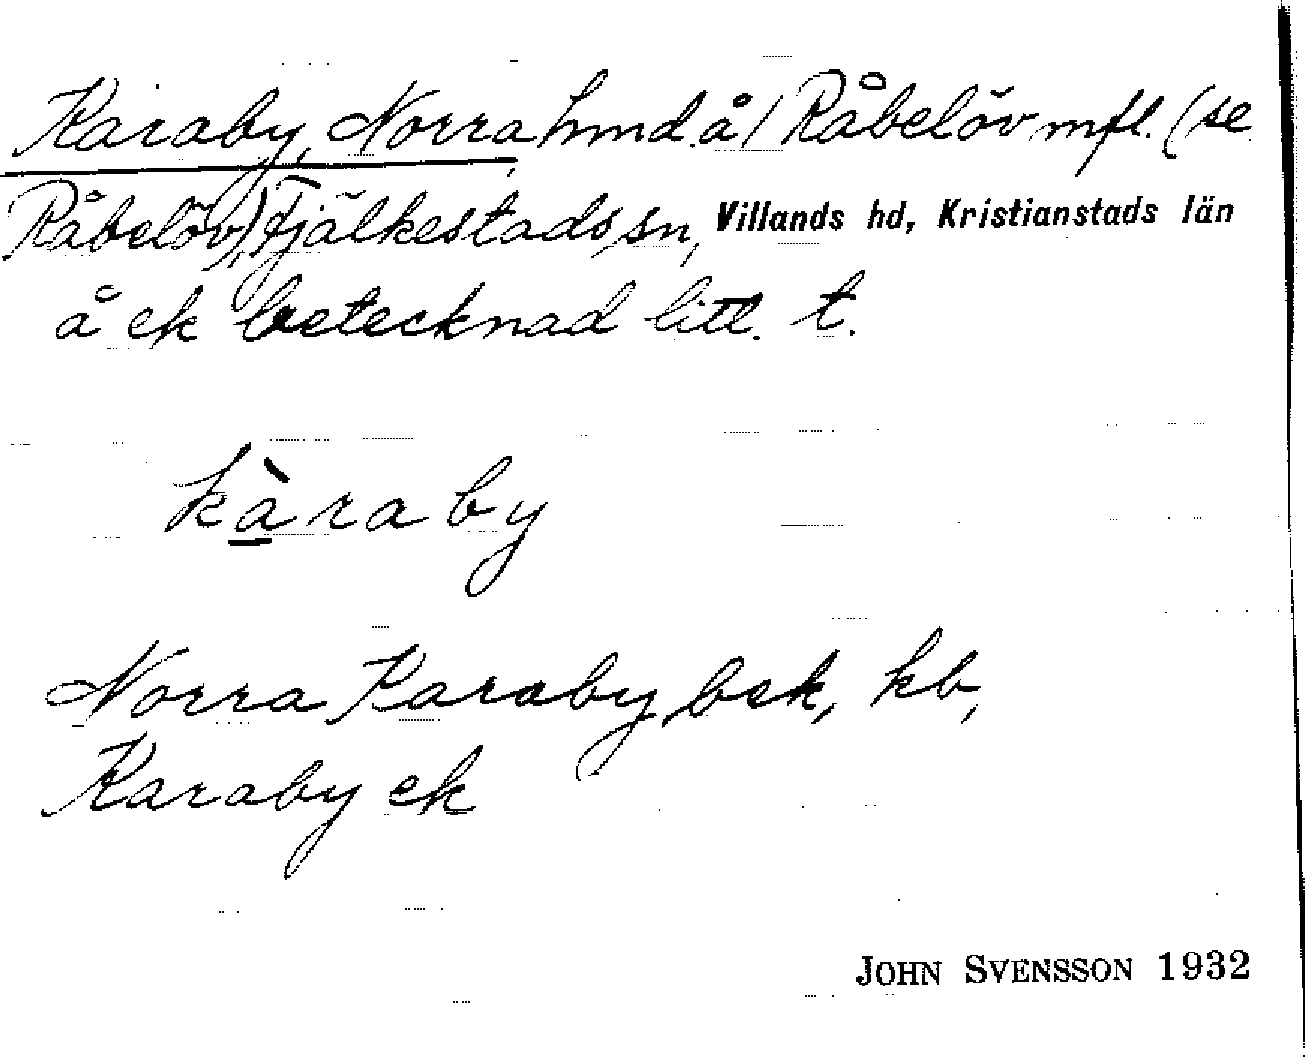 Karaby, Norra, hmd å/ Råbelöv mfl. (se
Råbelöv), Fjälkestads sn, Villands hd, Kristianstads län
å ek betecknad litt. t.
kàraby
Norra Karaby, bek, kb,
Karaby ek
JOHN SVENSSON 1932